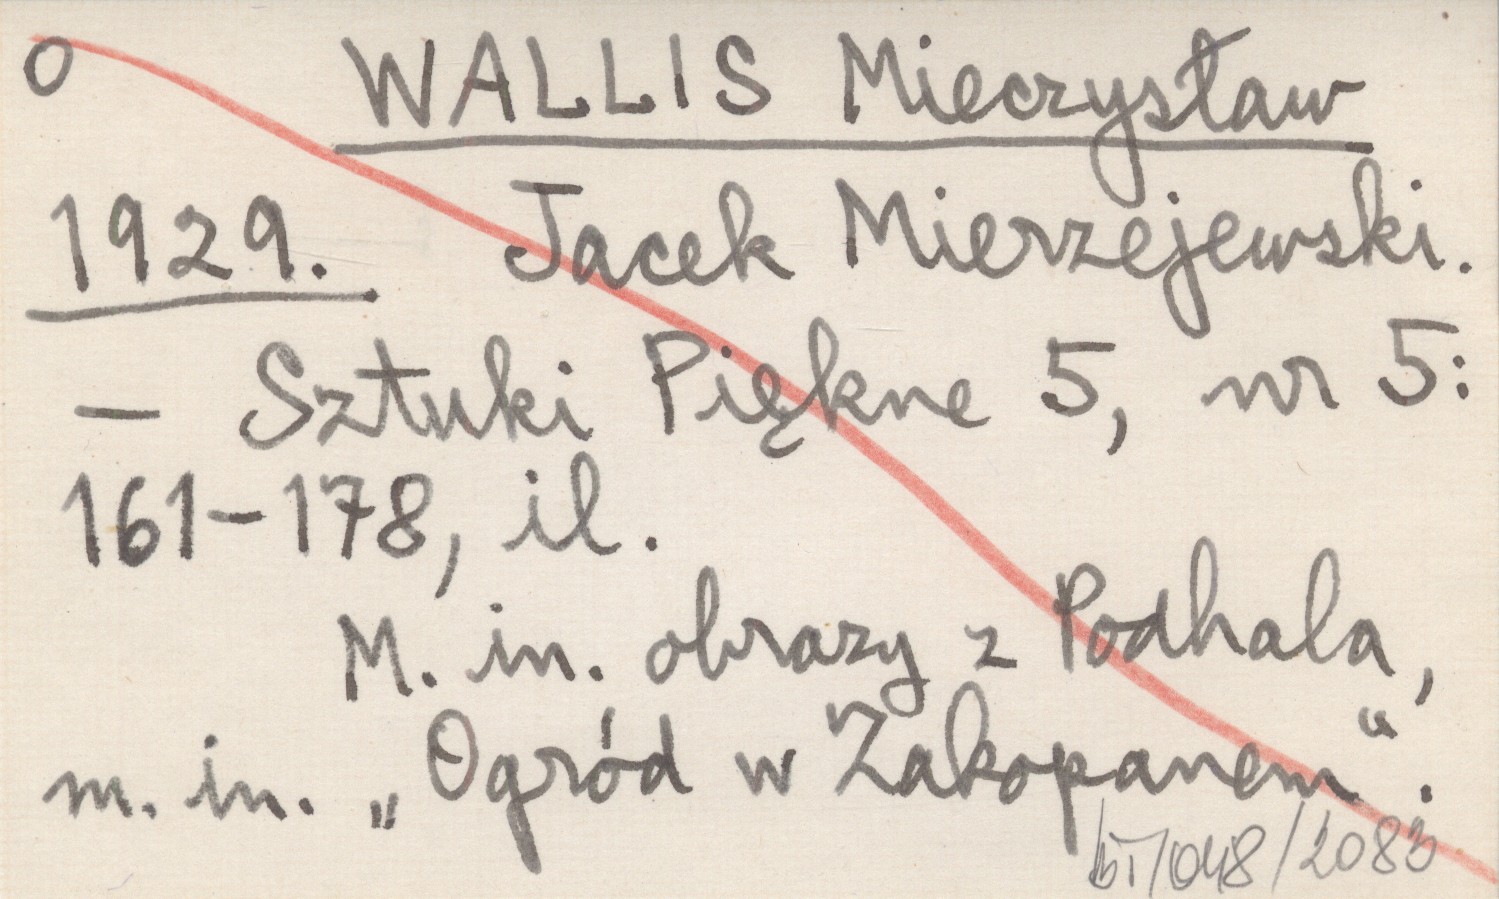 O WALLIS Mieczysław
1929. Jacek Mierzejewski.
— Sztuki Piękne 5, nr 5:
161-178, il.
M. in. obrazy z Podhala,
m. in. „Ogród w Zakopanem“.
/2083